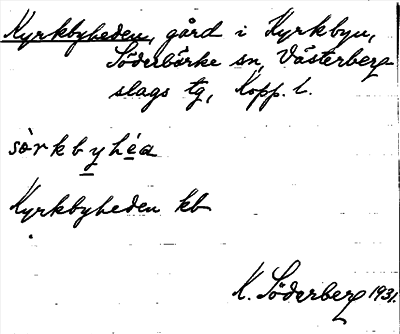 Kyrkbyheden, gård i Kyrkbyn,
Söderbärke sn, Västerberg
slags tg, Kopp. l.
sòrkbyhéa
Kyrkbyheden kb
K. Söderberg 1931.